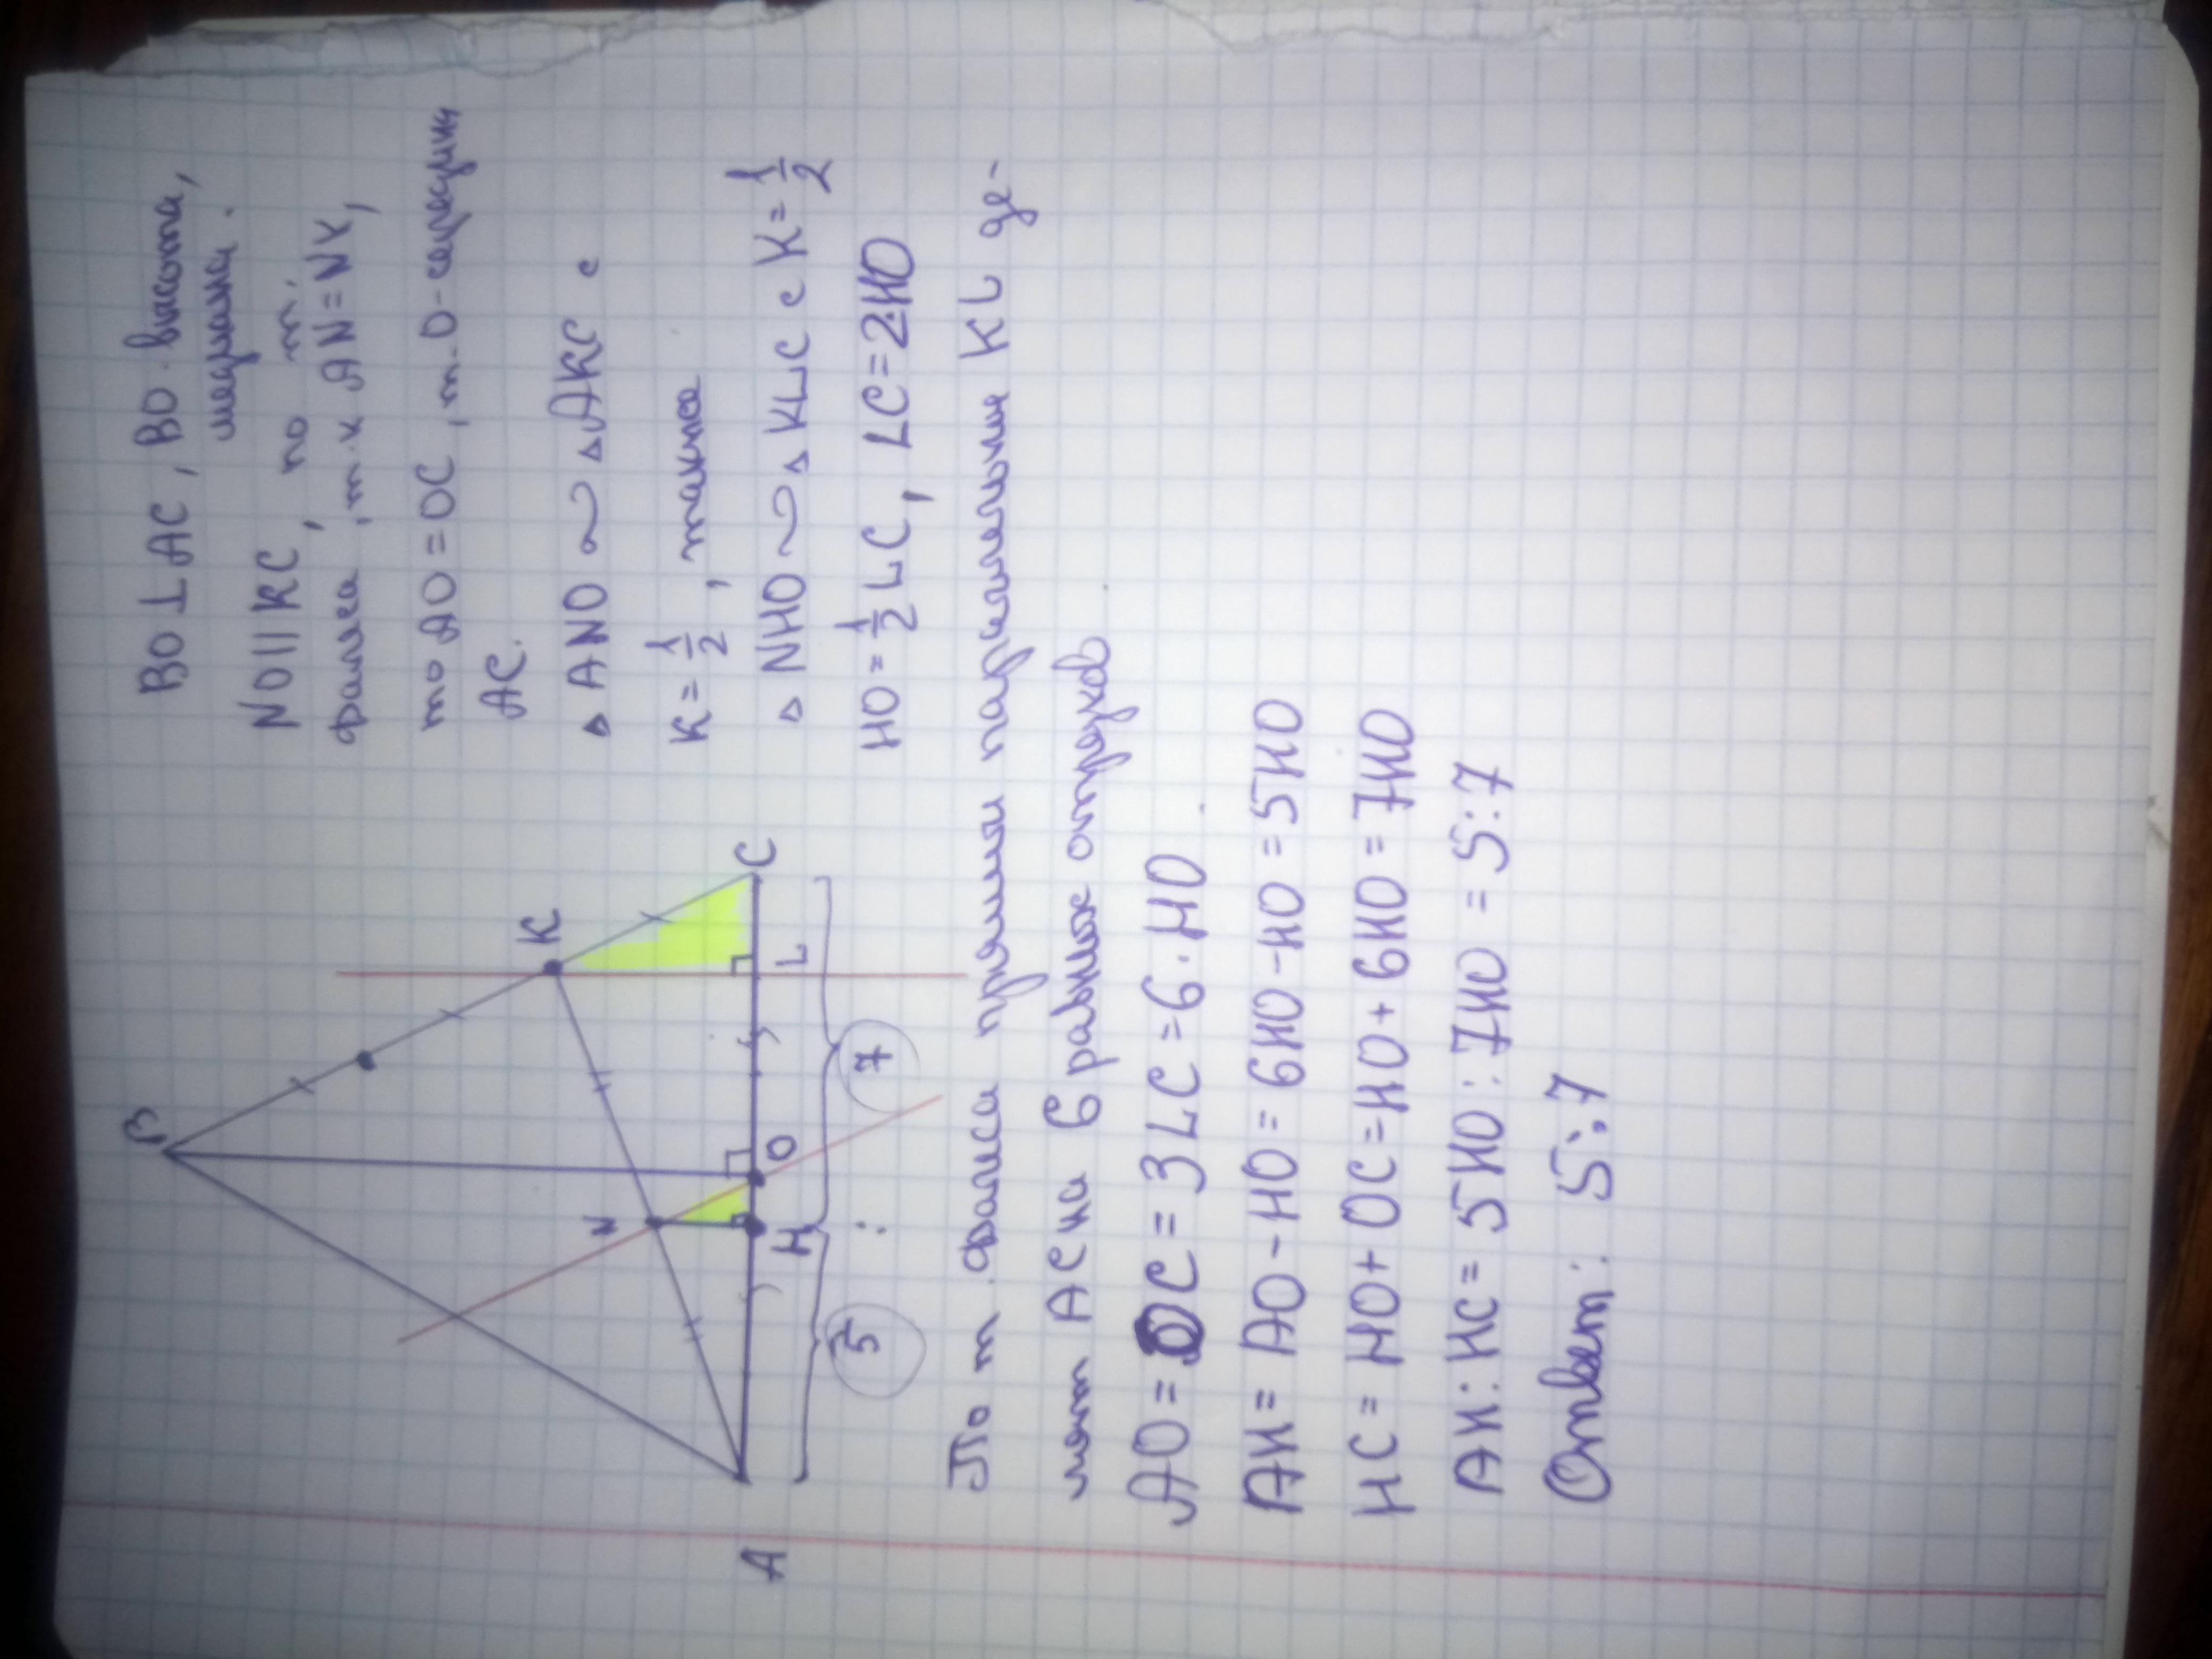 B
K
N
A
H
O
L
C
5 : 7
BO ⊥ AC, BO - высота,
медиана.
NO || KC, по т.
Фалеса, т.к AN = NK,
то AO = OC, т. O - середина
AC.
△ ANO ∼ △ AKC с
K = 1/2, также
△ NHO ∼ △ KLC с K = 1/2
HO = 1/2 LC, LC = 2·HO
По т. Фалеса прямыи параллельныи KL де-
лят AC на 6 равных отрезков
AO = OC = 3 LC = 6 · HO
AH = AO - HO = 6HO - HO = 5HO
HC = HO + OC = HO + 6HO = 7HO
AH : HC = 5HO : 7HO = 5:7
Ответ: 5:7